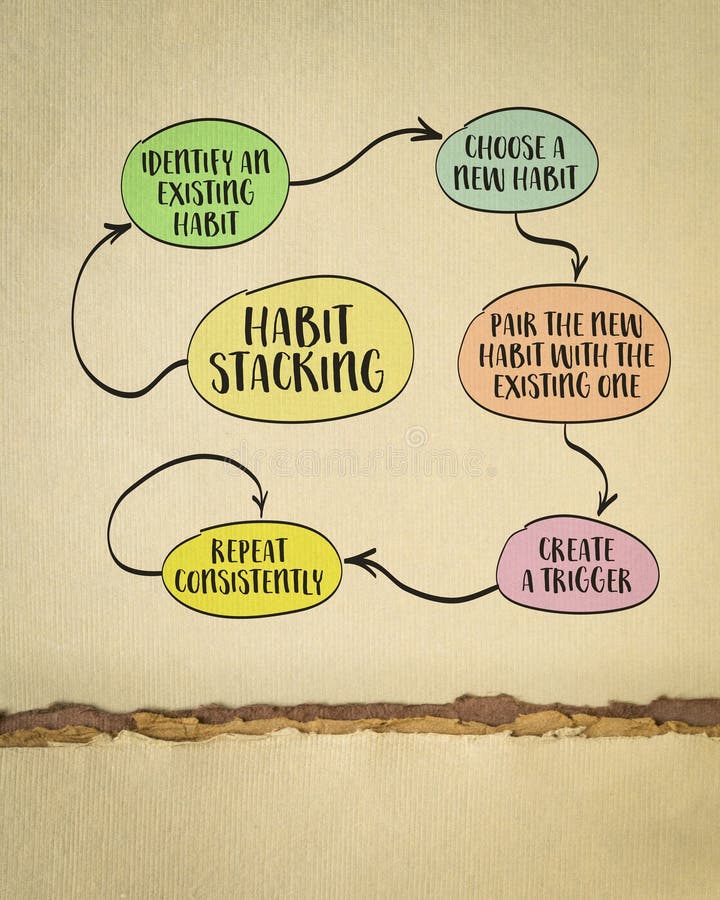 HABIT
STACKING
IDENTIFY AN
EXISTING
HABIT
CHOOSE A
NEW HABIT
PAIR THE NEW
HABIT WITH THE
EXISTING ONE
CREATE
A TRIGGER
REPEAT
CONSISTENTLY
dreamstime